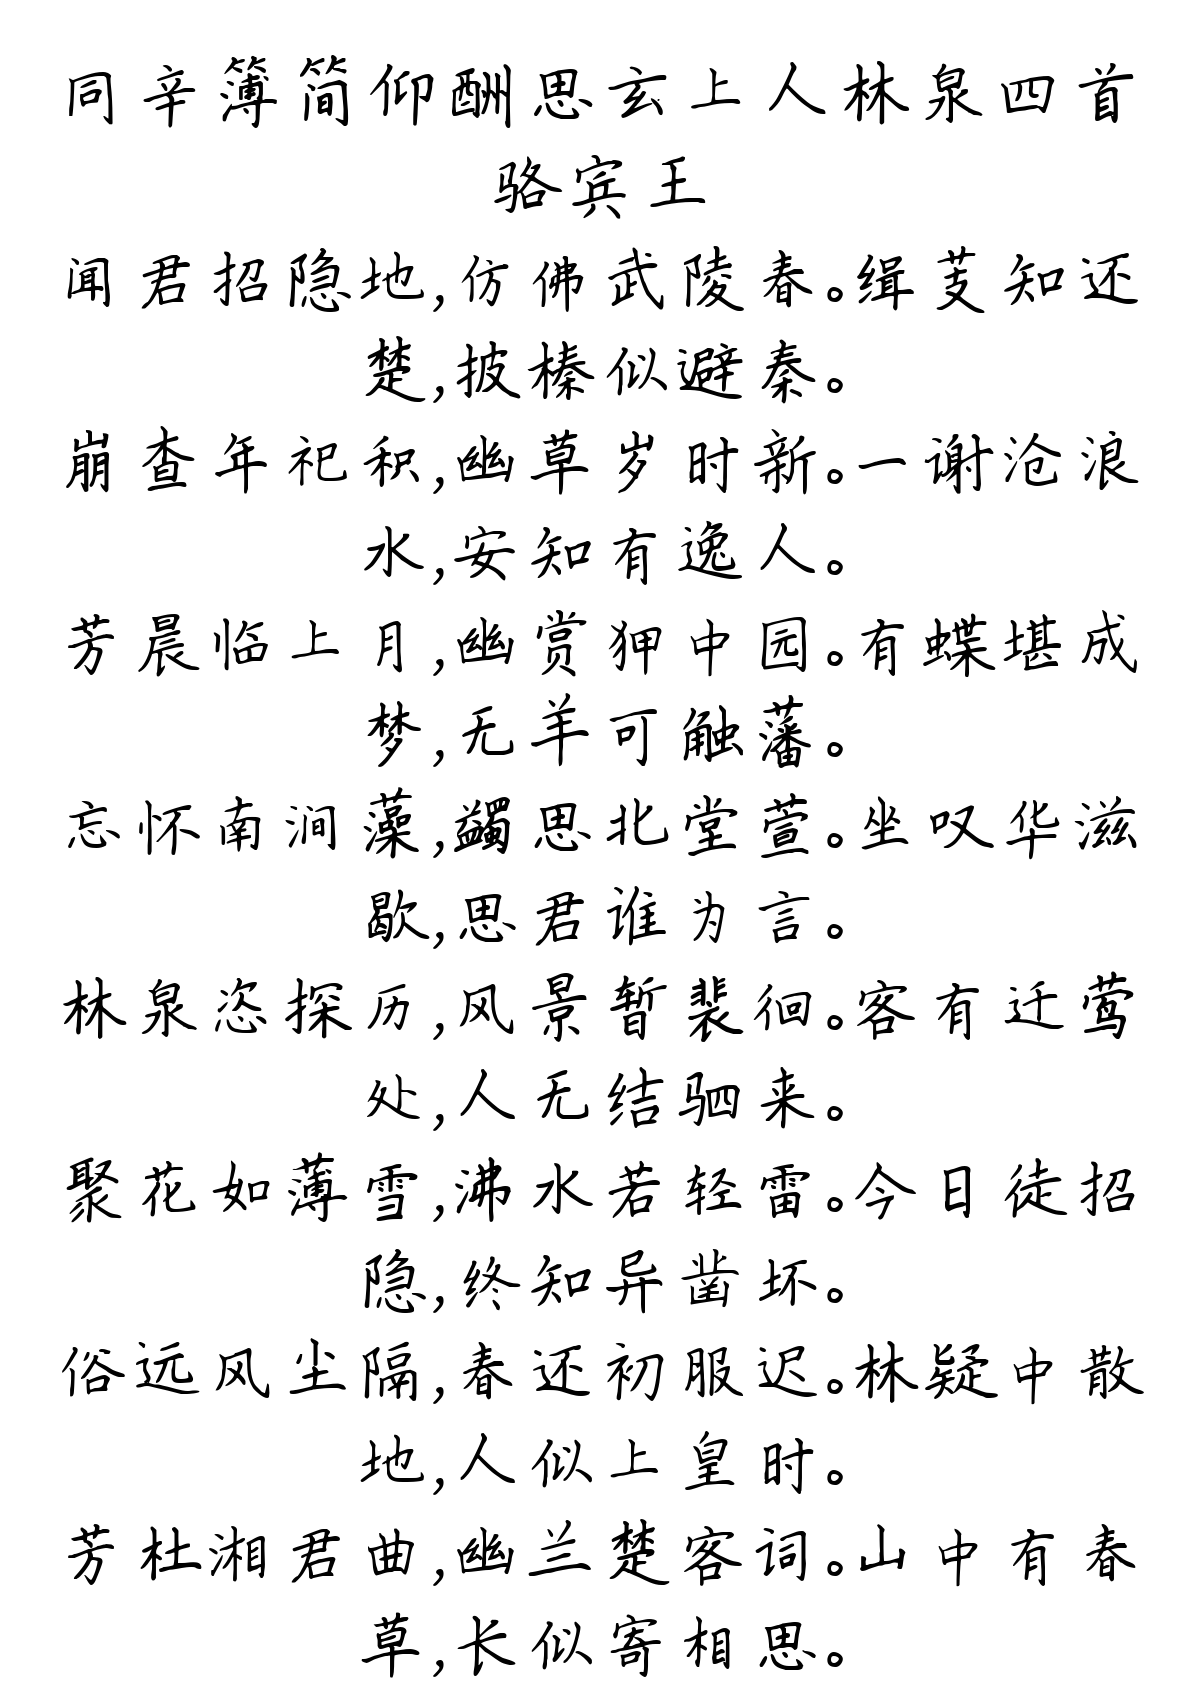 同辛簿简仰酬思玄上人林泉四首
骆宾王
闻君招隐地,仿佛武陵春。缉芰知还
楚,披榛似避秦。
崩查年祀积,幽草岁时新。一谢沧浪
水,安知有逸人。
芳晨临上月,幽赏狎中园。有蝶堪成
梦,无羊可触藩。
忘怀南涧藻,蠲思北堂萱。坐叹华滋
歇,思君谁为言。
林泉恣探历,风景暂裴徊。客有迁莺
处,人无结驷来。
聚花如薄雪,沸水若轻雷。今日徒招
隐,终知异凿坏。
俗远风尘隔,春还初服迟。林疑中散
地,人似上皇时。
芳杜湘君曲,幽兰楚客词。山中有春
草,长似寄相思。